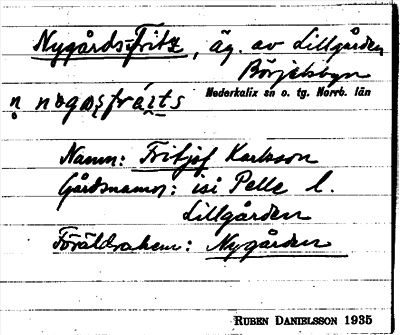 Nygårds-Fritz, äg. av Lillgården
Börjelsbyn
Nederkalix sn o. tg. Norrb. län
Namn: Fritjof Karlsson
Gårdsnamn: isi Pelle l.
Lillgården
Föräldrahem: Nygården
RUBEN DANIELSSON 1935